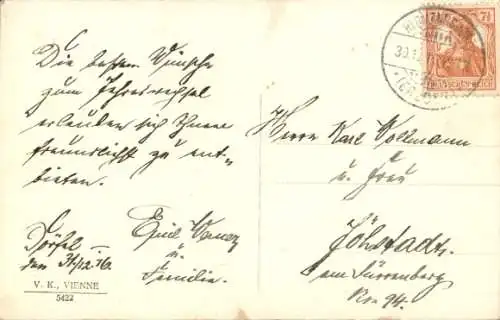 Die besten Wünsche
zum Jahreswechsel
erlauben sich Ihnen
freundlichst zu ent-
bieten.
Emil
u.
Familie.
Dörfel
den 31/12.16.
V. K., VIENNE
5422
Herrn Karl Kollmann
u. Frau
Jöhstadt.
am Dürrenberg
Nro 94.
7½
DEUTSCHES REICH